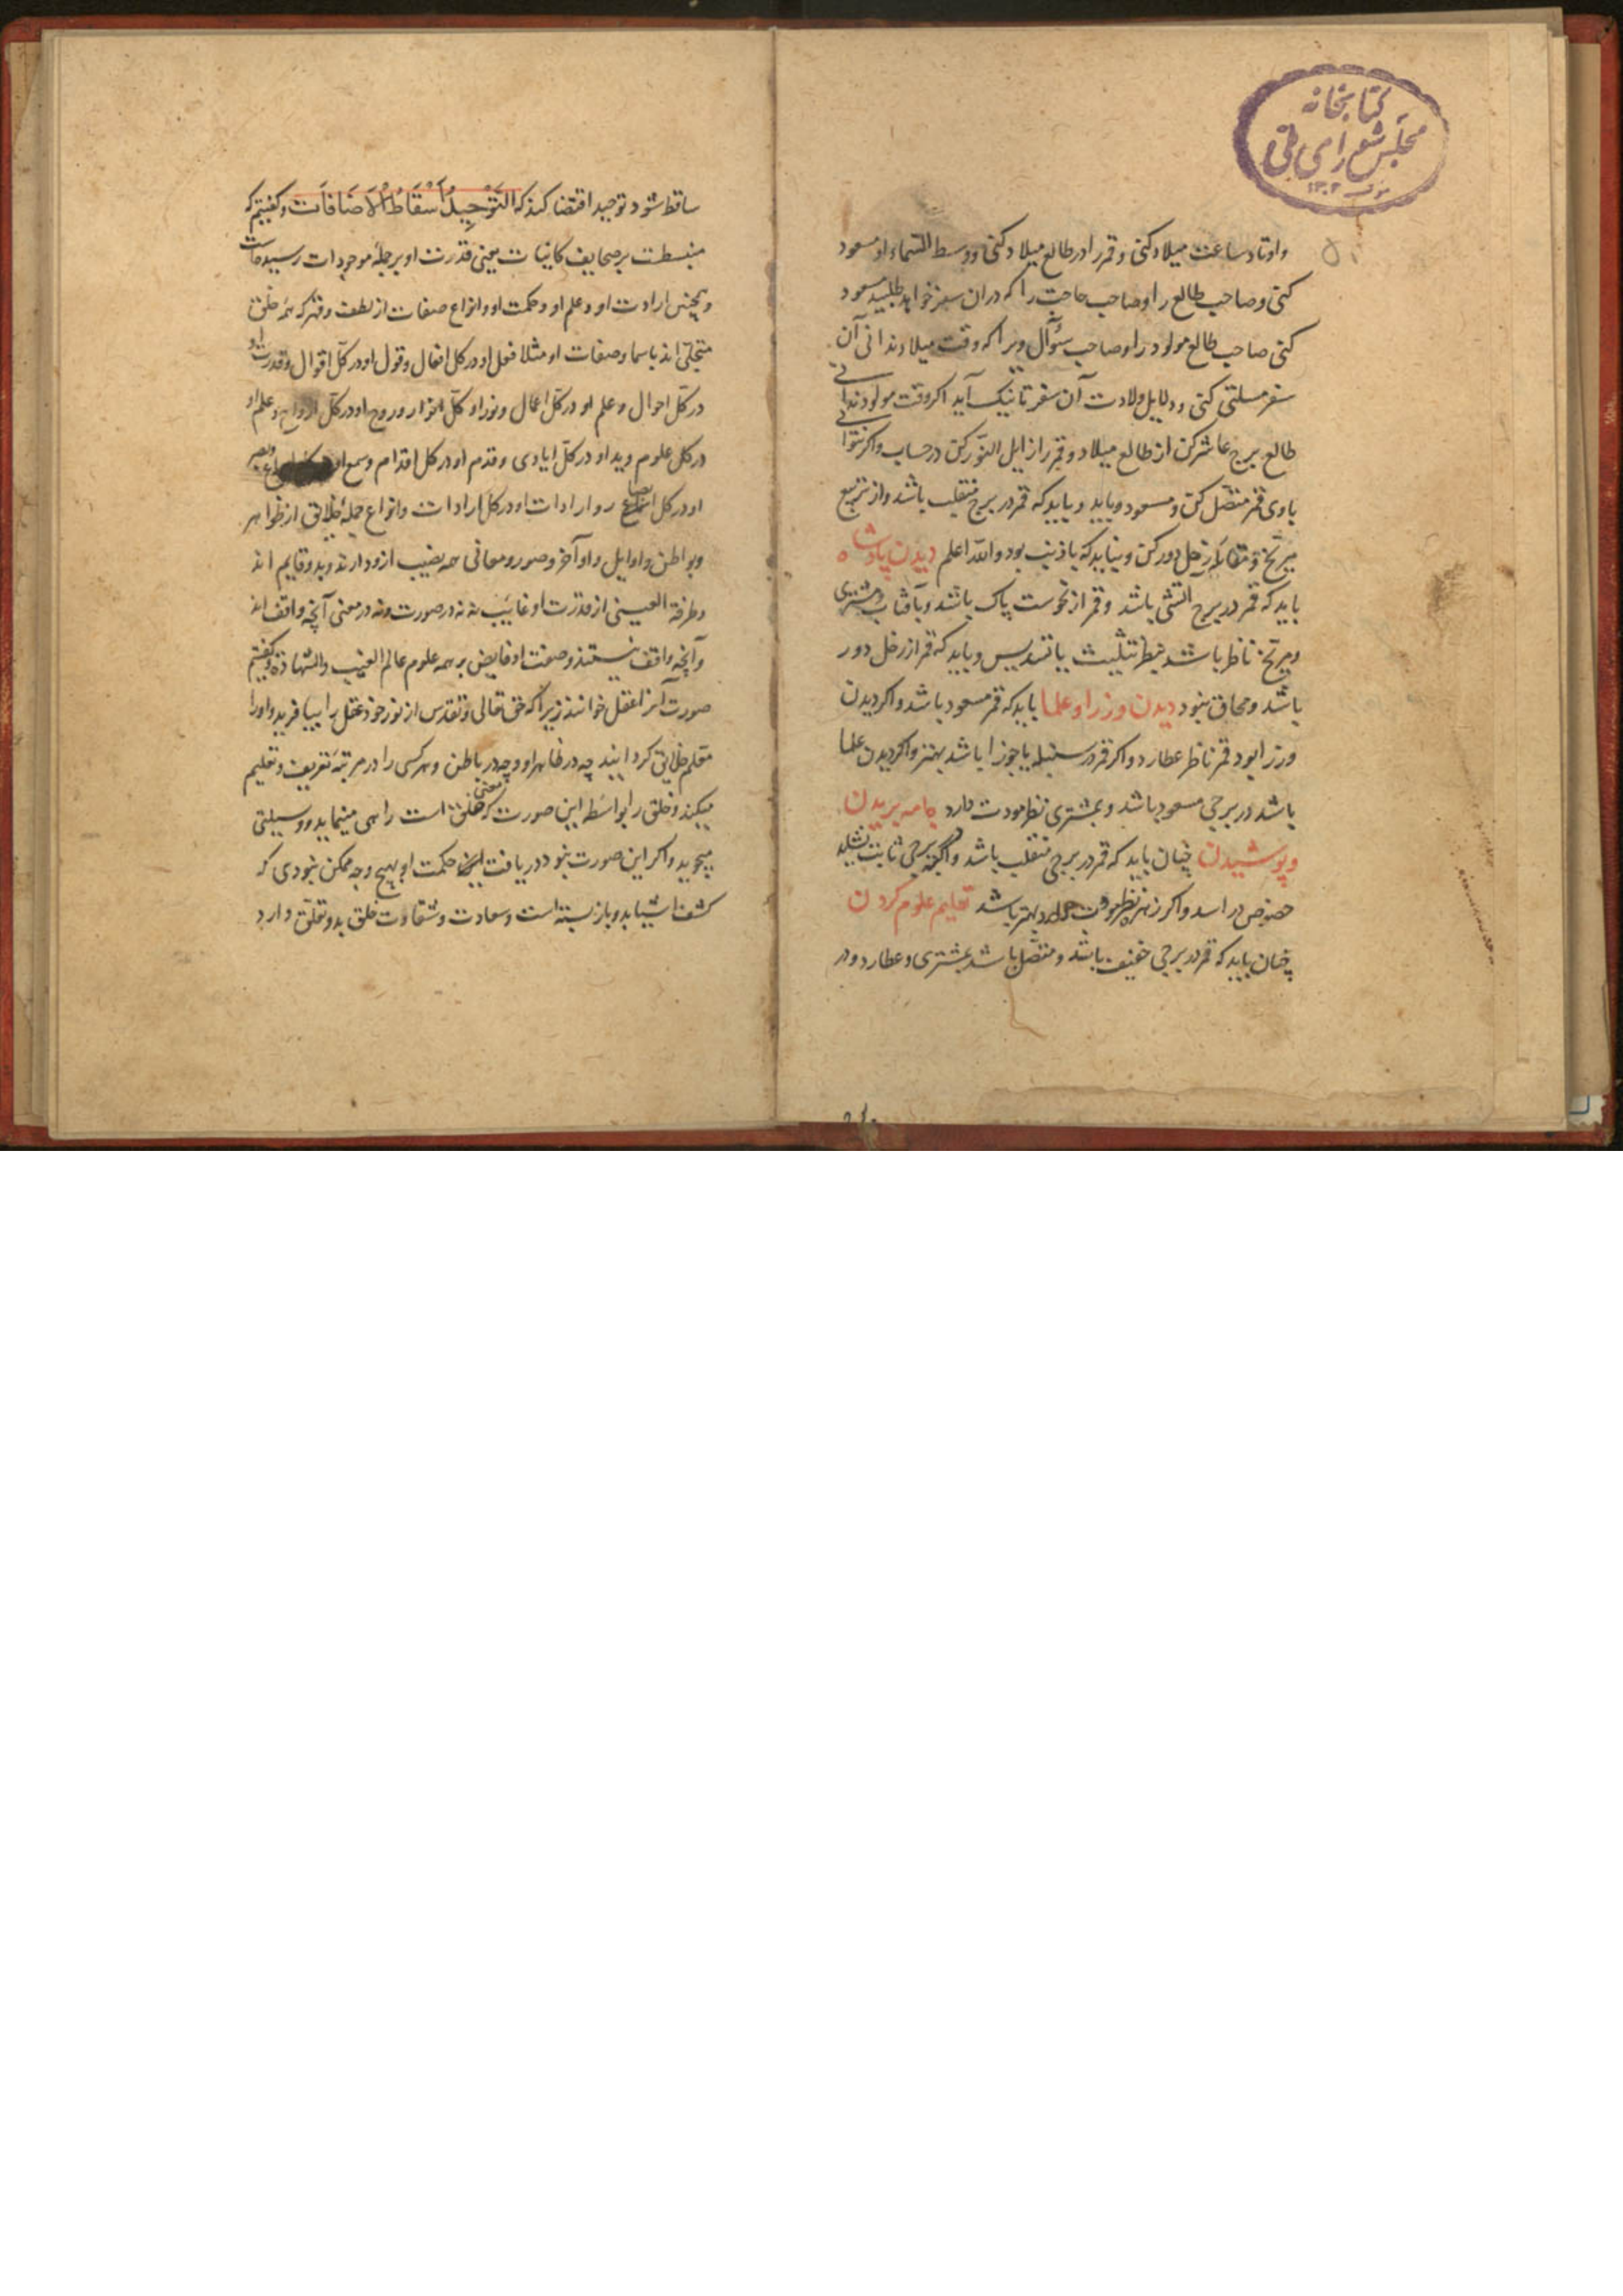 کتابخانه
مجلس شورای ملی
۵۰
واوتاد ساعت میلاد کنی و قمر را در طالع میلاد کنی و وسط السماء او مسعود
کنی و صاحب طالع را و صاحب حاجت را که در ان سفر خواهد طلبید مسعود
کنی صاحب طالع مولود را و صاحب سؤال ویرا که وقت میلاد ندانی آن
سفر مسلتی کنی و دلایل ولادت آن سفر تا نیک آید اکر وقت مولود ندانی
طالع برج عاشر کن از طالع میلاد و قمر را زایل النور کن در حساب و اکر نتوانی
باوی قمر متصل کن و مسعود و باید و باید که قمر در برج منقلب باشد و از تربیع
مریخ و مقابله زحل دور کن و نباید که با ذنب بود والله اعلم دیدن پادشاه
باید که قمر در برج آتشی باشد و قمر از نحوست پاک باشد و بآفتاب و مشتری
و مریخ ناظر باشد بنظر تثلیث یا تسدیس و باید که قمر از زحل دور
باشد و محاق نبود دیدن وزرا و علما باید که قمر مسعود باشد و اکر دیدن
وزرا بود قمر ناظر عطارد و اکر قمر در سنبله یا جوزا باشد بهتر و اکر دیدن علما
باشد در برجی مسعود باشد و بمشتری نظر مودت دارد جامه بریدن
و پوشیدن چنان باید که قمر در برجی منقلب باشد و اکر برجی ثابت نشاید
خصوص در اسد و اکر زهره نظر مودت دارد بهتر باشد تعلیم علوم کردن
چنان باید که قمر در برجی خفیف باشد و متصل باشد بمشتری و عطارد و در
ساقط شود توحید اقتضا کند که التَّوْحِیدُ اَسْقَاطُ الْاَضَافَات و کفتیم که
منبسطت بر صحایف کاینات یعنی قدرت او بر جملۀ موجودات رسیده است
و همچنین ارادت او و علم او و حکمت او و انواع صفات از لطف و قهر که همه خلق
متجلی اند باسما و صفات او مثلا فعل او در کل افعال و قول او در کل اقوال و قدرت او
در کل احوال و علم او در کل اعمال و نور او کل انوار و روح او در کل ارواح و علم او
در کل علوم و ید او در کل ایادی و قدم او در کل اقدام و سمع او در کل اسماع و بصر
او در کل ابصار و ارادات او در کل ارادات و انواع جملۀ خلایق از ظواهر
و بواطن و اوایل و اواخر و صور و معانی همه نصیب ازو دارند و بدو قایم اند
و طرفة العینی از قدرت او غایب نه نه در صورت و نه در معنی آنچه واقف اند
و آنچه واقف نیستند و صفت او فایض بر همه علوم عالم الغیب والشهادة و کفتیم
صورت آنرا عقل خوانند زیرا که حق تعالی و تقدس از نور خود عقل را بیافرید و اورا
معلم خلایق کردانید چه در ظاهر او و چه در باطن و هر کسی را در مرتبۀ تعریف و تعلیم
میکند و خلق را بواسطه این صورت که معنی خلق است راهی مینماید و وسیلتی
میجوید و اکر این صورت نبود دریافت این حکمت او بهیچ وجه ممکن نبودی که
کشف اشیا بدو باز بسته است و سعادت و شقاوت خلق بدو تعلق دارد